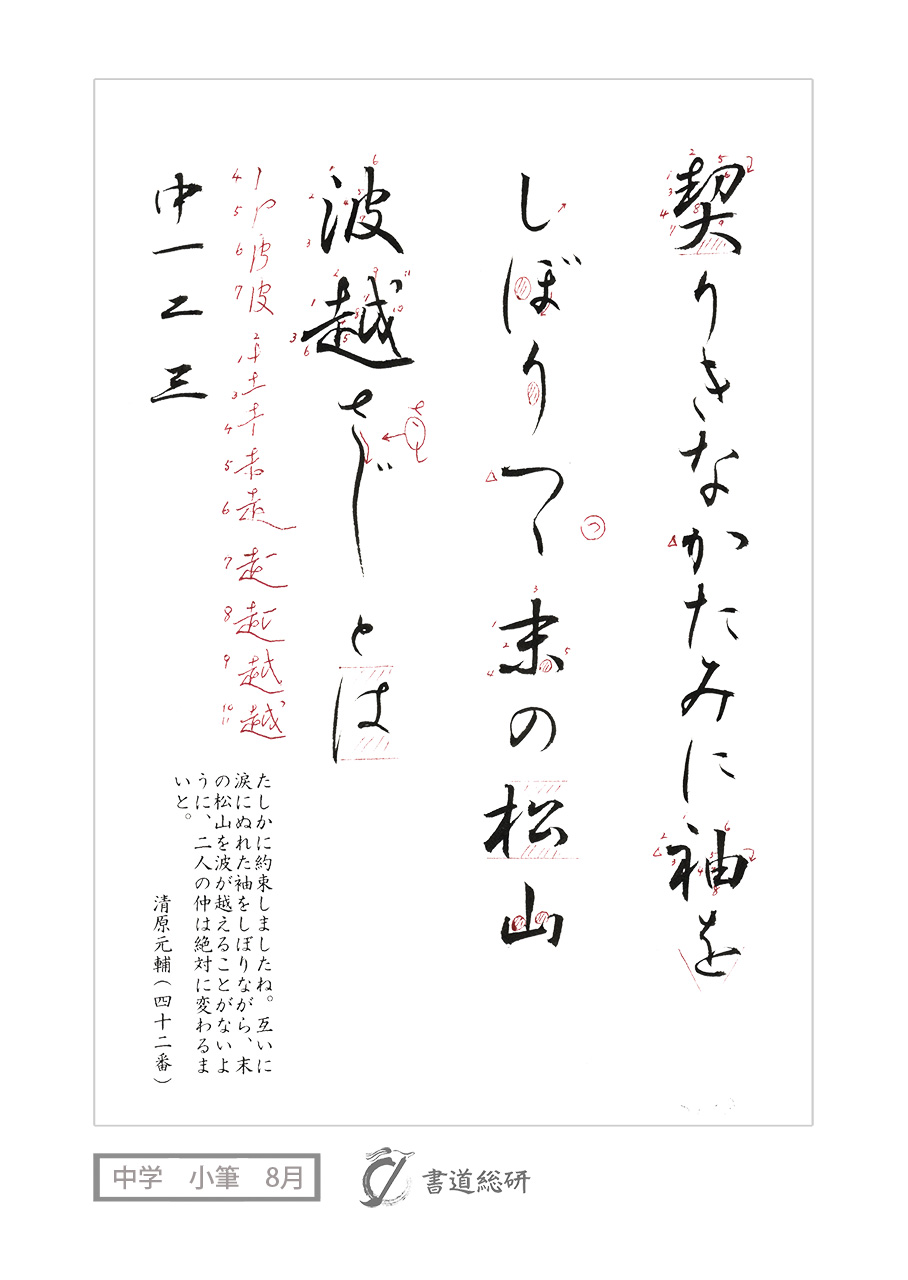 契りきなかたみに袖を
しぼりつゝ末の松山
つ
波越さじとは
さ
中一二三
たしかに約束しましたね。互いに
涙にぬれた袖をしぼりながら、末
の松山を波が越えることがないよ
うに、二人の仲は絶対に変わるま
いと。
清原元輔(四十二番)
中学　小筆　8月
書道総研